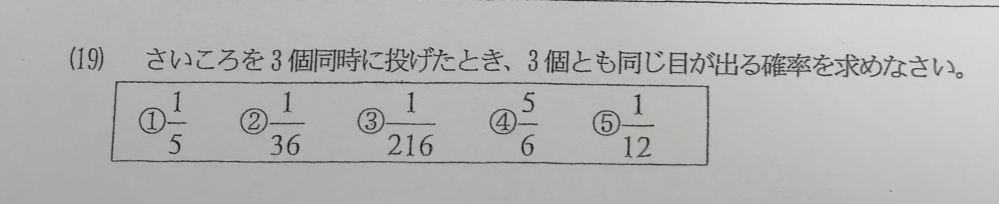 (19) さいころを3個同時に投げたとき、3個とも同じ目が出る確率を求めなさい。
① 1/5 ② 1/36 ③ 1/216 ④ 5/6 ⑤ 1/12